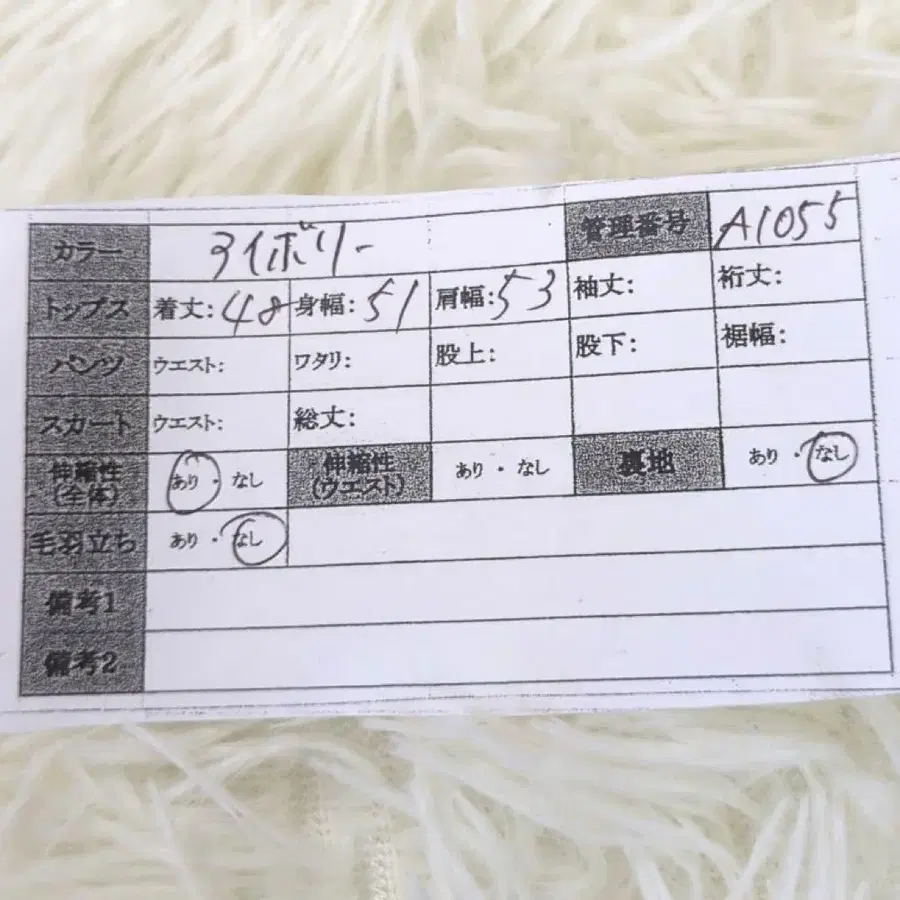 カラー アイボリー 管理番号 A1055
トップス 着丈:48 身幅:51 肩幅:53 袖丈: 裄丈:
パンツ ウエスト: ワタリ: 股上: 股下: 裾幅:
スカート ウエスト: 総丈:
伸縮性(全体) あり・なし 伸縮性(ウエスト) あり・なし 裏地 あり・なし
毛羽立ち あり・なし
備考1
備考2